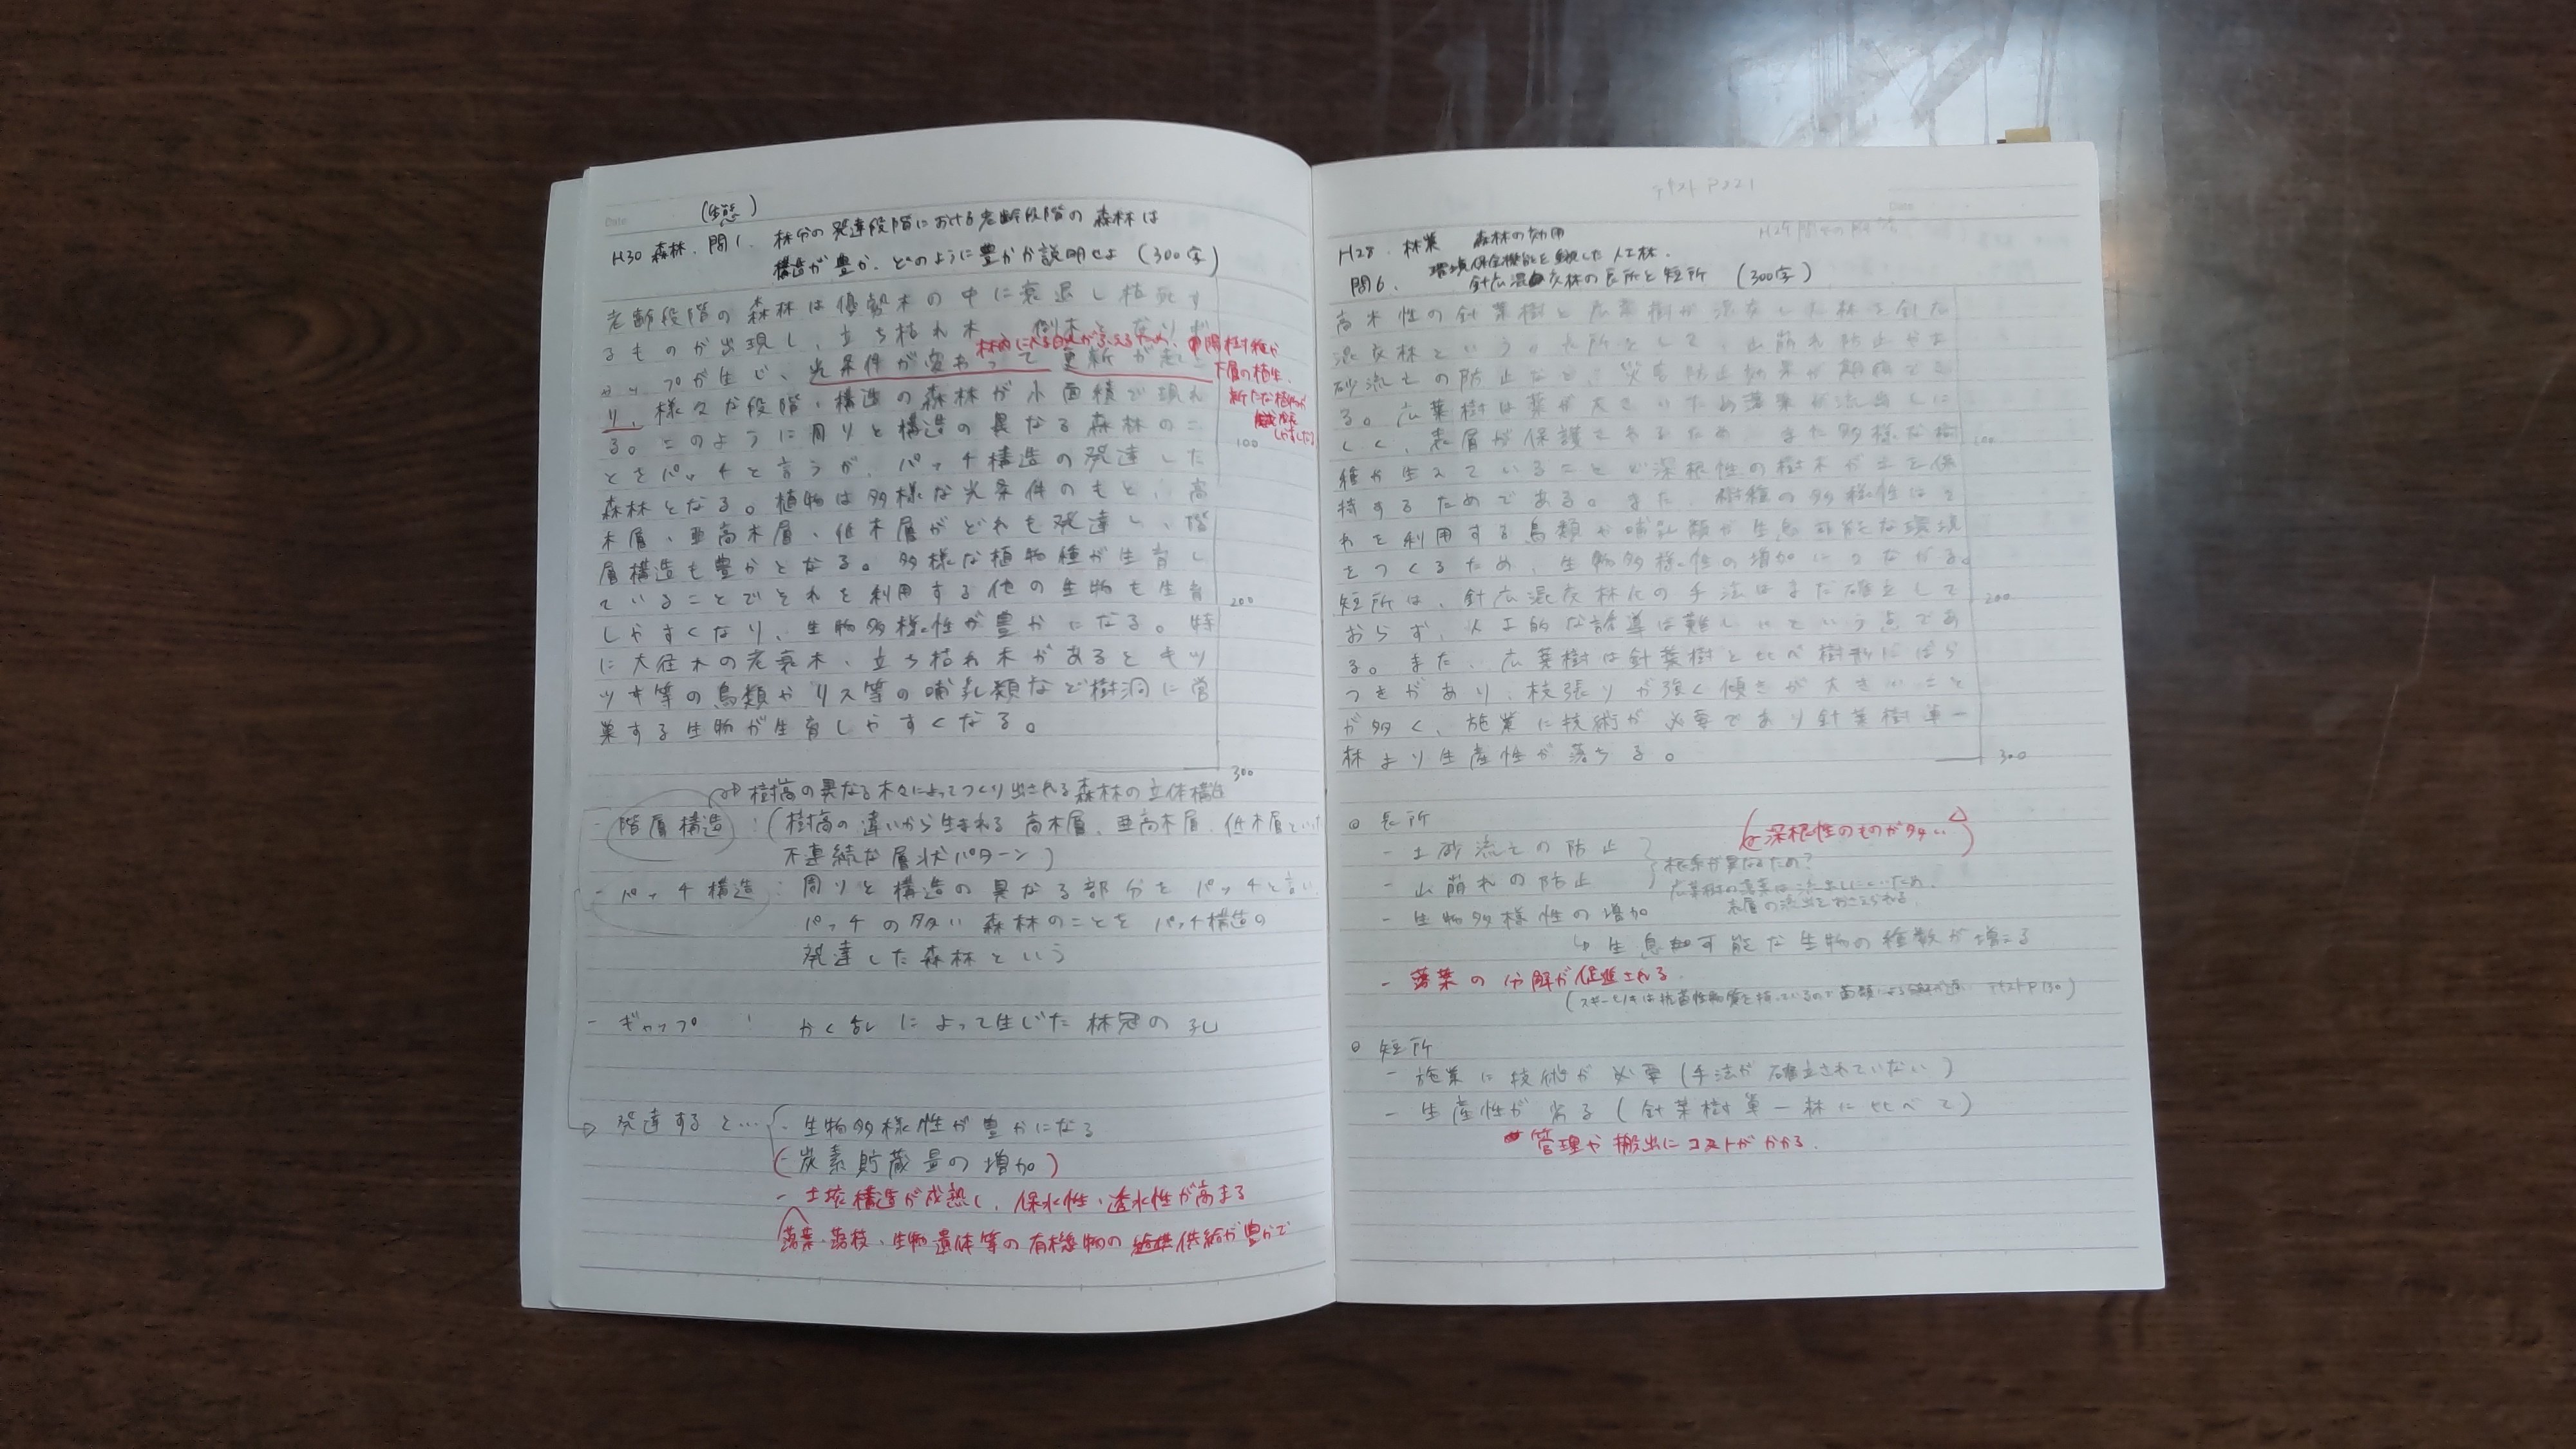 Date
(生態)
H30 森林. 問1. 林分の発達段階における老齢段階の森林は
構造が豊か. どのように豊かか説明せよ (300字)
老齢段階の森林は優勢木の中に衰退し枯死す
るものが出現し、立ち枯れ木、倒木となりギ
林内に入る日光がふえるため、中陽樹種や
ャップが生じ、光条件が変わって更新が起こ
下層の植生、
新たな植物が
成長
しやすくなる
り、様々な段階・構造の森林が小面積で現れ
る。このように周りと構造の異なる森林のこ
100
とをパッチと言うが、パッチ構造の発達した
森林となる。植物は多様な光条件のもと、高
木層、亜高木層、低木層がどれも発達し、階
層構造も豊かとなる。多様な植物種が生育し
ていることでそれを利用する他の生物も生育
200
しやすくなり、生物多様性が豊かになる。特
に大径木の老衰木、立ち枯れ木があるとキツ
ツキ等の鳥類やリス等の哺乳類など樹洞に営
巣する生物が生育しやすくなる。
300
樹高の異なる木々によってつくり出される森林の立体構造
- 階層構造 : (樹高の違いから生まれる 高木層、亜高木層、低木層といった
不連続な層状パターン)
- パッチ構造 : 周りと構造の異なる部分をパッチと言い
パッチの多い森林のことをパッチ構造の
発達した森林という
- ギャップ : かく乱によって生じた林冠の孔
→ 発達すると… - 生物多様性が豊かになる
(- 炭素貯蔵量の増加)
- 土壌構造が成熟し、保水性・透水性が高まる
落葉・落枝・生物遺体等の有機物の供給が豊かで
テキストP221
Date
H28. 林業 森林の効用
環境保全機能を重視した人工林.
問6. 針広混交林の長所と短所 (300字)
高木性の針葉樹と広葉樹が混交した林を針広
混交林という。長所として、山崩れ防止や土
砂流亡の防止など、災害防止効果が期待でき
る。広葉樹は葉が大きいため落葉が流出しに
くく、表層が保護されるため、また多様な樹
100
種が生えていることで深根性の樹木が土を保
持するためである。また、樹種の多様性はそ
れを利用する鳥類や哺乳類が生息可能な環境
をつくるため、生物多様性の増加につながる。
短所は、針広混交林化の手法はまだ確立して
200
おらず、人工的な誘導は難しいという点であ
る。また、広葉樹は針葉樹と比べ樹形にばら
つきがあり、枝張りが強く傾きが大きいこと
が多く、施業に技術が必要であり針葉樹単一
林より生産性が落ちる。
300
◎ 長所
深根性のものが多い
- 土砂流亡の防止
根系が異なるため?
- 山崩れの防止
広葉樹の落葉は流出しにくいため.
表層の流出をおさえられる.
- 生物多様性の増加
↳ 生息可能な生物の種数が増える
- 落葉の分解が促進される
(スギ・ヒノキは抗菌性物質を持っているので菌類による分解が遅い テキストP130)
◎ 短所
- 施業に技術が必要 (手法が確立されていない)
- 生産性が劣る (針葉樹単一林に比べて)
管理や搬出にコストがかかる.